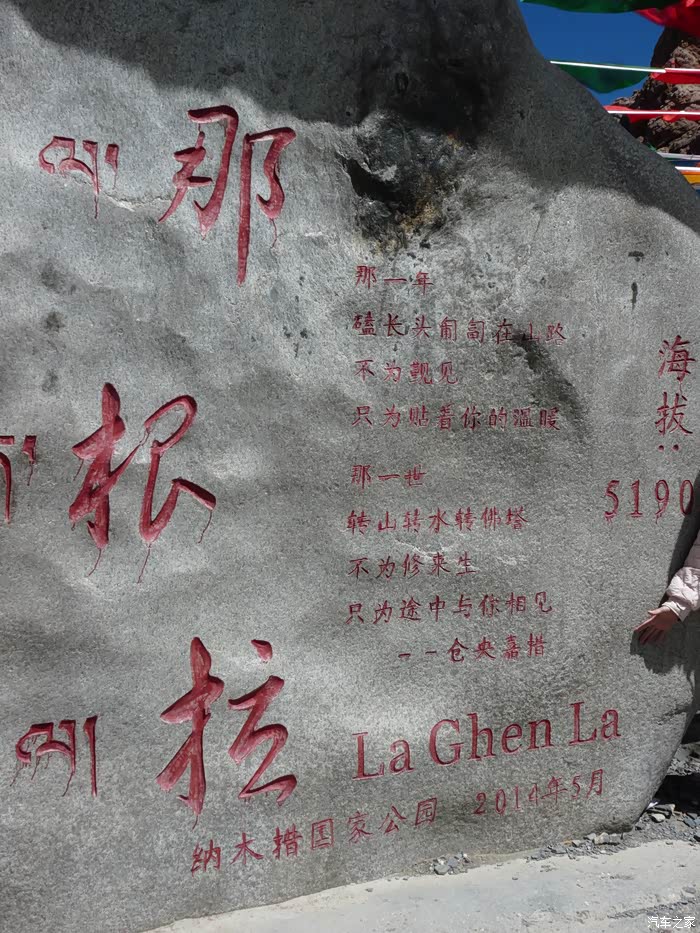 那根拉
那一年
磕长头匍匐在山路
不为觐见
只为贴着你的温暖
那一世
转山转水转佛塔
不为修来生
只为途中与你相见
--仓央嘉措
海拔:
5190
La Ghen La
纳木措国家公园 2014年5月
汽车之家